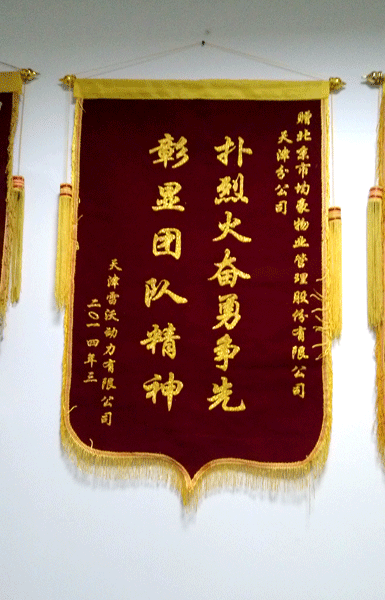 赠北京市均豪物业管理股份有限公司
天津分公司
扑烈火奋勇争先
彰显团队精神
天津雷沃动力有限公司
二〇一四年三